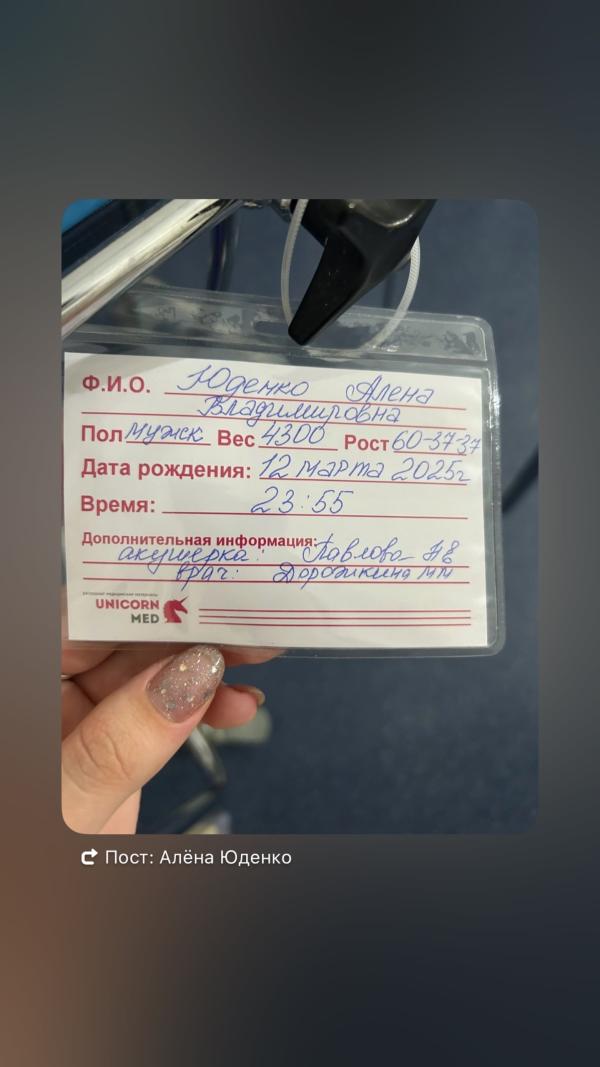 Ф.И.О. Юденко Алена
Владимировна
Пол мужск Вес 4300 Рост 60-37-37
Дата рождения: 12 марта 2025г
Время: 23:55
Дополнительная информация:
акушерка: Павлова НВ
врач: Дорожкина ММ
UNICORN
MED
Пост: Алёна Юденко